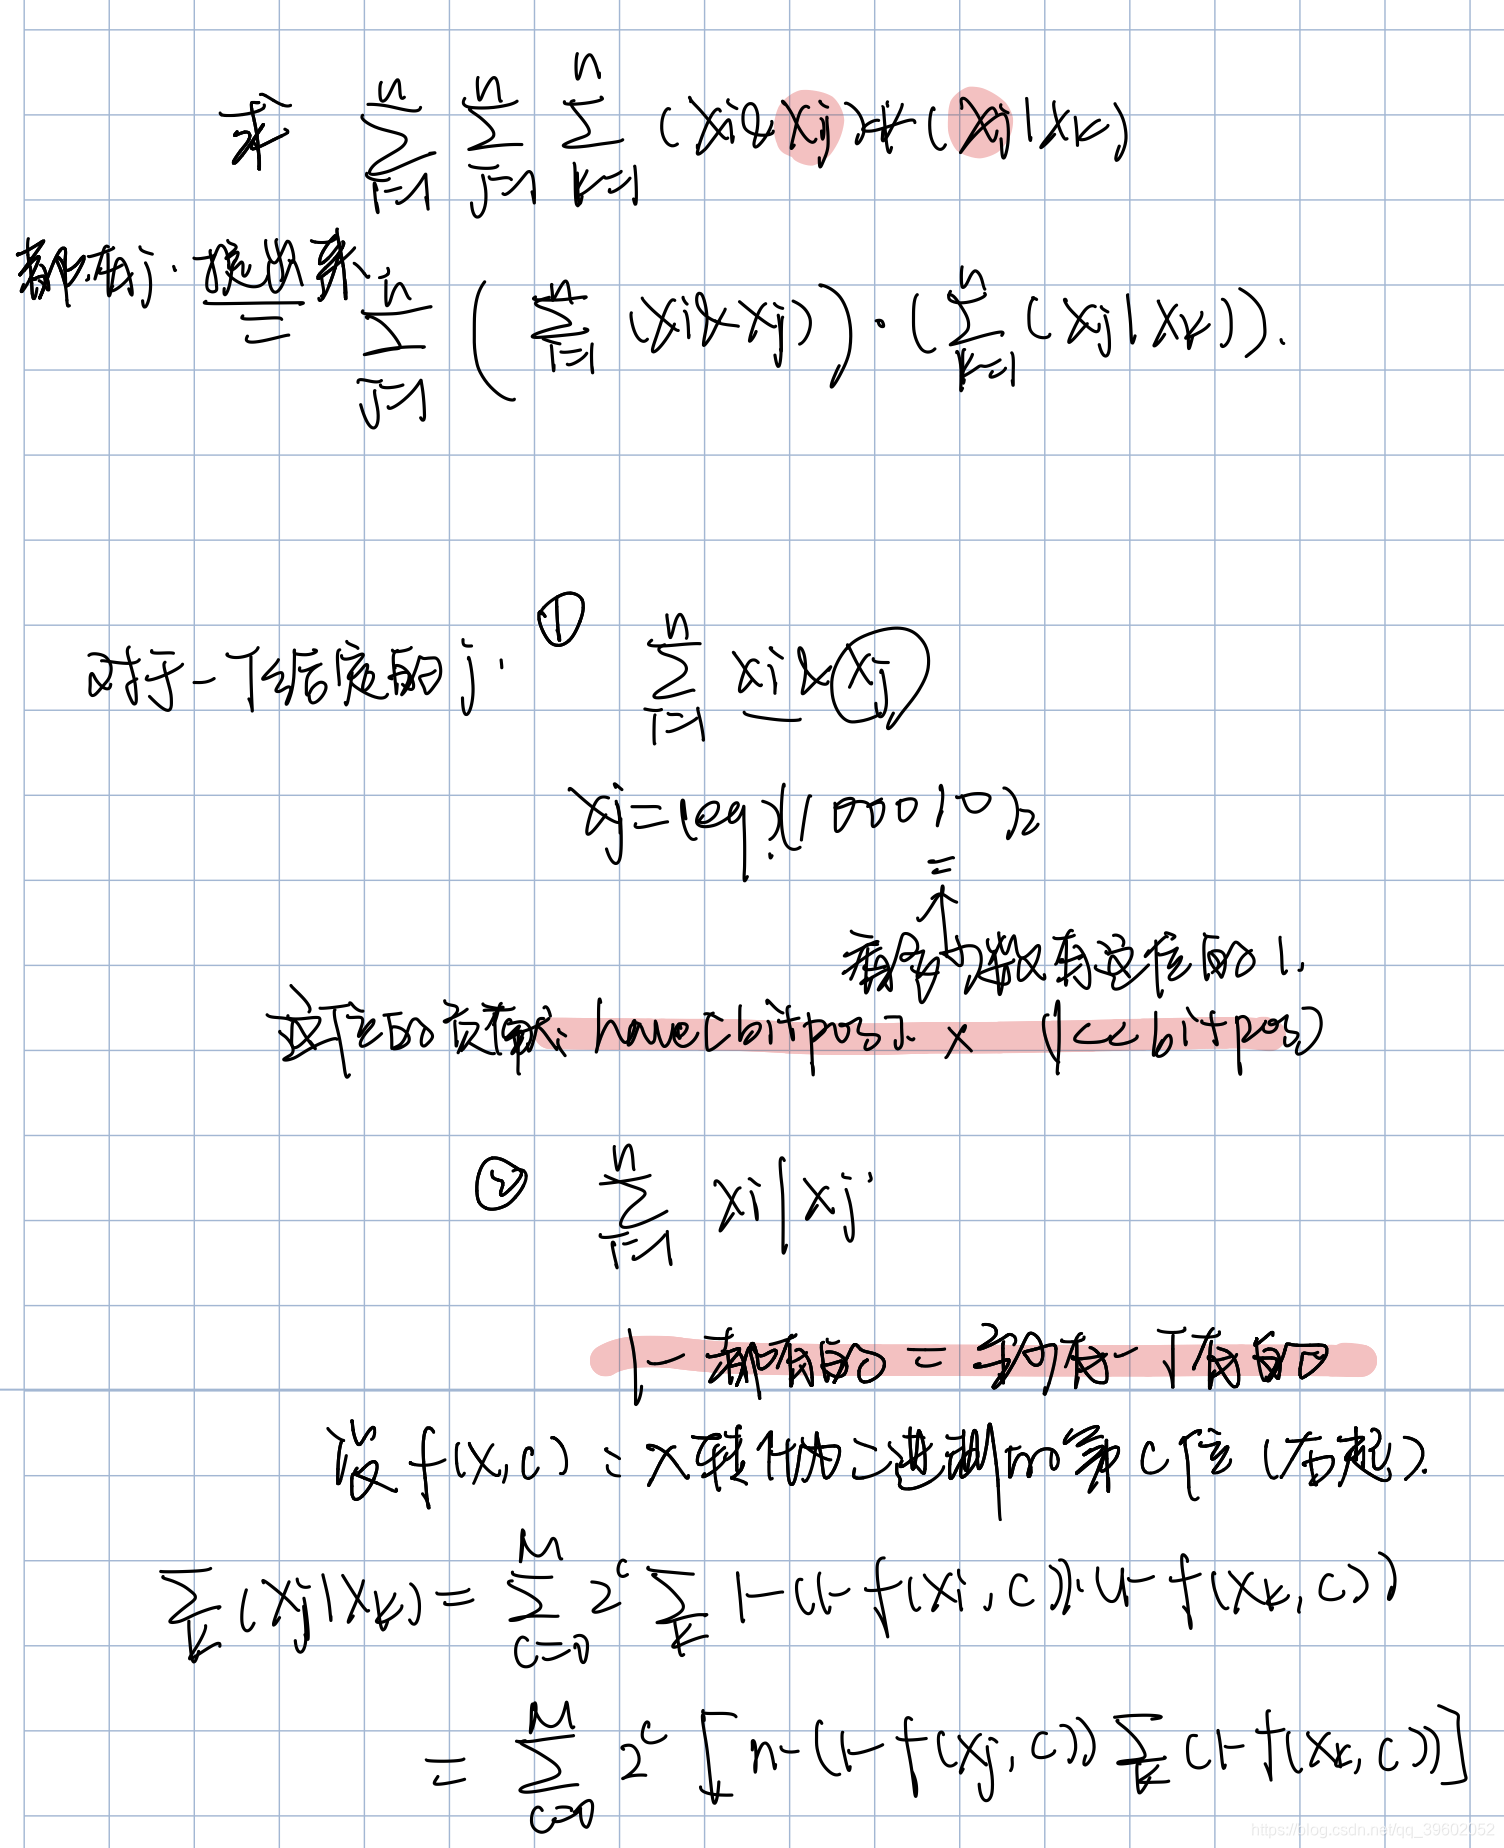 求 $\sum_{i=1}^{n} \sum_{j=1}^{n} \sum_{k=1}^{n} (x_i \& x_j) * (x_j | x_k)$
都有j. 提出来
$= \sum_{j=1}^{n} \left( \sum_{i=1}^{n} (x_i \& x_j) \right) \cdot \left( \sum_{k=1}^{n} (x_j | x_k) \right).$
对于一个给定的j. ① $\sum_{i=1}^{n} x_i \& x_j$
$x_j = (eg.)(100010)_2$
=
↑
看多少数有这位的1.
这个1的贡献: have[bitpos] × (1<<bitpos)
② $\sum_{i=1}^{n} x_i | x_j$
1-都没有的 = 至少有一个有的
设 f(x,c): x转化为二进制的第c位 (右起).
$\sum_{k} (x_j | x_k) = \sum_{c=0}^{M} 2^c \sum_{k} 1-(1-f(x_i,c)) \cdot (1-f(x_k,c))$
$= \sum_{c=0}^{M} 2^c [n-(1-f(x_j,c)) \sum_{k} (1-f(x_k,c))]$
https://blog.csdn.net/qq_39602052